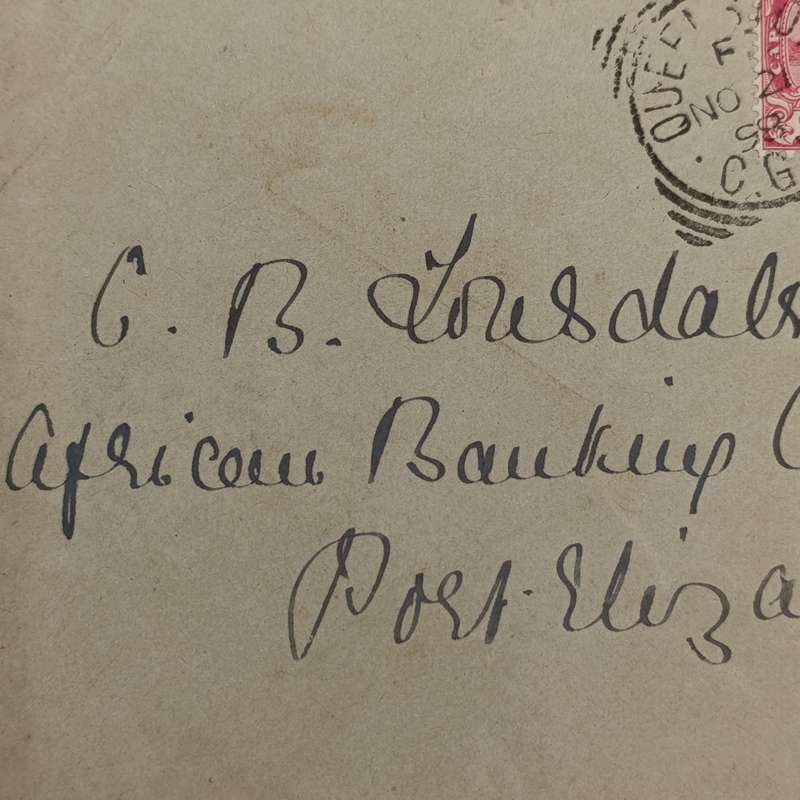 QUEEN
F
NO 21
98
C.G
CAP
C. B. Lonsdale
African Banking C
Port Eliza